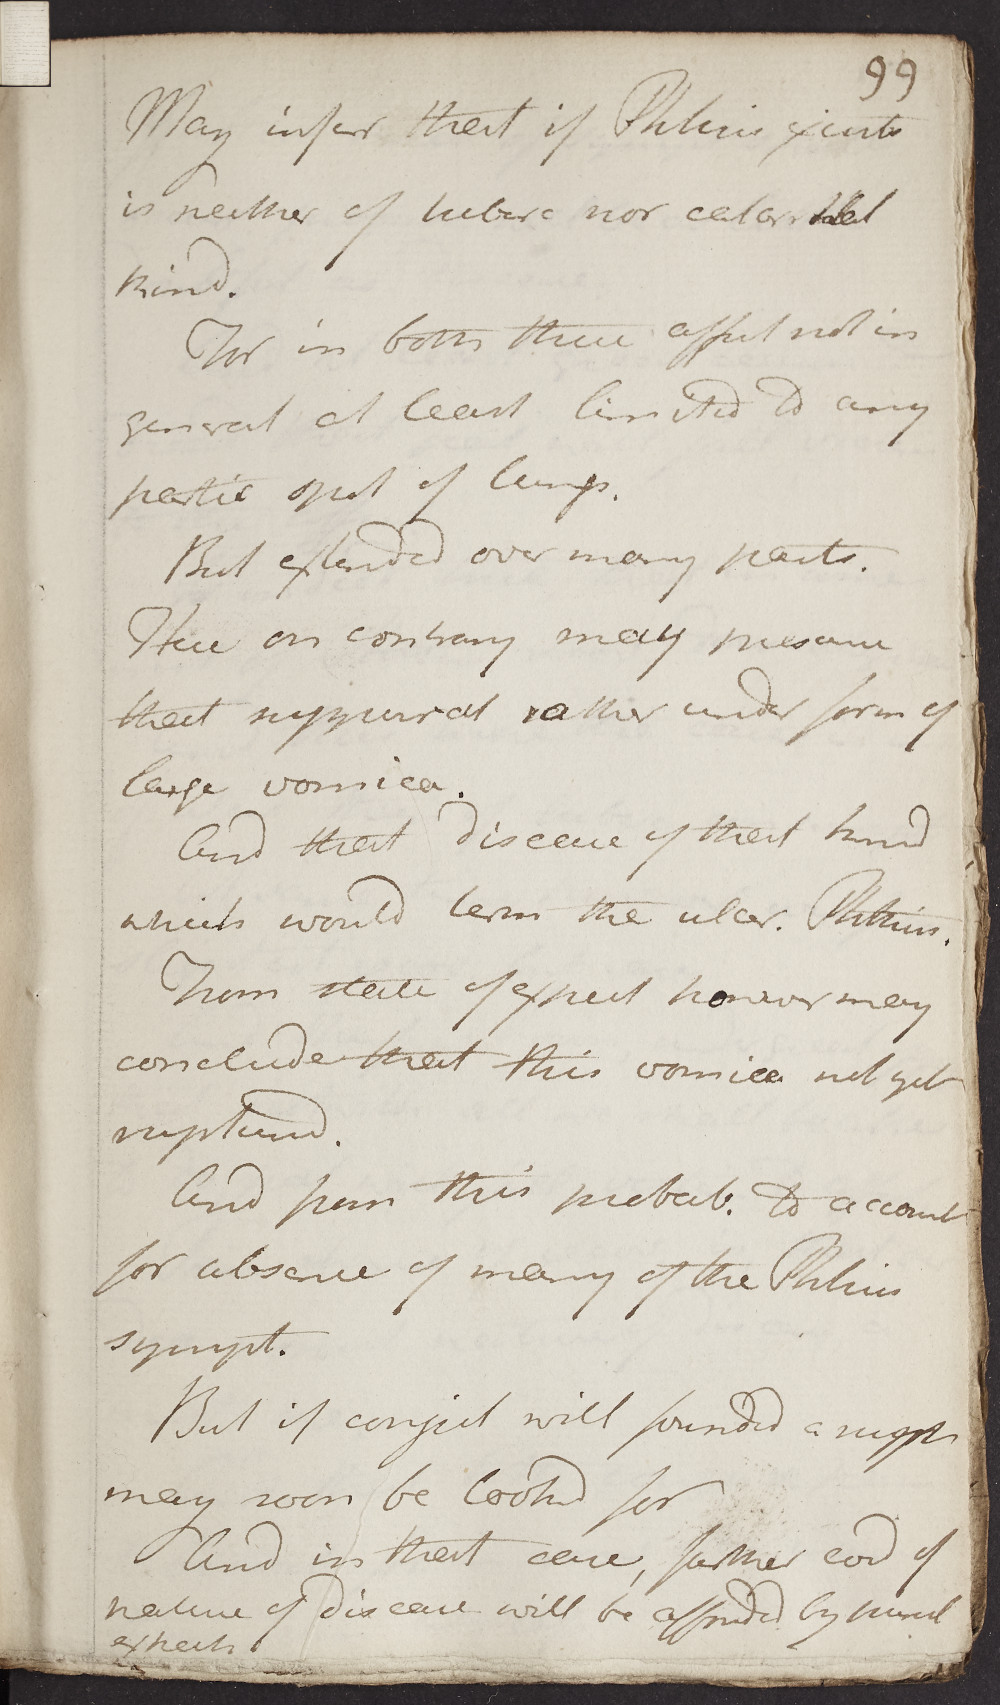 99
May infer that if Phthisis exists
is neither of tuberc nor catarrhal
kind.
For in both these affect not in
general at least limited to any
partic spot of lungs.
But extended over many parts.
Here on contrary may presume
that suppurat rather under form of
large vomica.
And that disease of that kind
which would term the ulcer. Phthisis.
From state of expect however may
conclude that this vomica not yet
ruptured.
And from this probab. to account
for absence of many of the Phthisis
sympt.
But if conject well founded a rupt
may soon be looked for
And in that case, further evid of
nature of disease will be afforded by purul
expect.